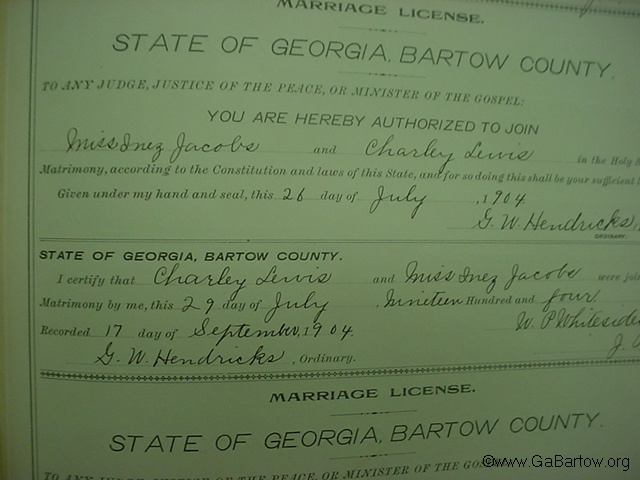 MARRIAGE LICENSE.
STATE OF GEORGIA, BARTOW COUNTY.
TO ANY JUDGE, JUSTICE OF THE PEACE, OR MINISTER OF THE GOSPEL:
YOU ARE HEREBY AUTHORIZED TO JOIN
Miss Inez Jacobs and Charley Lewis in the Holy
Matrimony, according to the Constitution and laws of this State, and for so doing this shall be your sufficient
Given under my hand and seal, this 26 day of July, 1904
G. W. Hendricks,
ORDINARY.
STATE OF GEORGIA, BARTOW COUNTY.
I certify that Charley Lewis and Miss Inez Jacobs were
Matrimony by me, this 29 day of July, Nineteen Hundred and four
W. P. Whitesides
Recorded 17 day of September, 1904.
J.
G. W. Hendricks, Ordinary.
MARRIAGE LICENSE.
STATE OF GEORGIA, BARTOW COUNTY.
TO ANY JUDGE, JUSTICE OF THE PEACE, OR MINISTER OF THE
©www.GaBartow.org